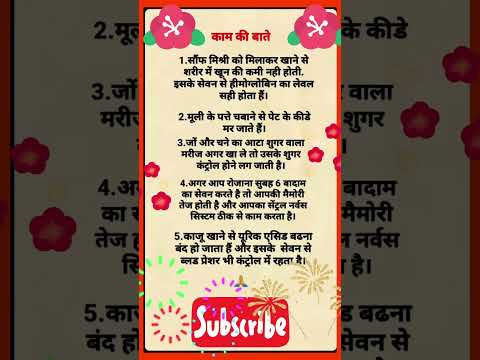 काम की बाते
1.सौंफ मिश्री को मिलाकर खाने से
शरीर में खून की कमी नही होती.
इसके सेवन से हीमोग्लोबिन का लेवल
सही होता हैं।
2.मूली के पत्ते चबाने से पेट के कीडे
मर जाते हैं।
3.जों और चने का आटा शुगर वाला
मरीज अगर खा ले तो उसके शुगर
कंट्रोल होने लग जाती है।
4.अगर आप रोजाना सुबह 6 बादाम
का सेवन करते है तो आपकी मैमोरी
तेज होती है और आपका सेंट्रल नर्वस
सिस्टम ठीक से काम करता है।
5.काजू खाने से यूरिक एसिड बढना
बंद हो जाता हैं और इसके सेवन से
ब्लड प्रेशर भी कंट्रोल में रहता है।
Subscribe
2.मूल
के कीडे
3.जों
मरीज
शुगर
बादाम
का स
मोरी
तेज ह
नर्वस
5.का
बढना
बंद हो
सेवन से